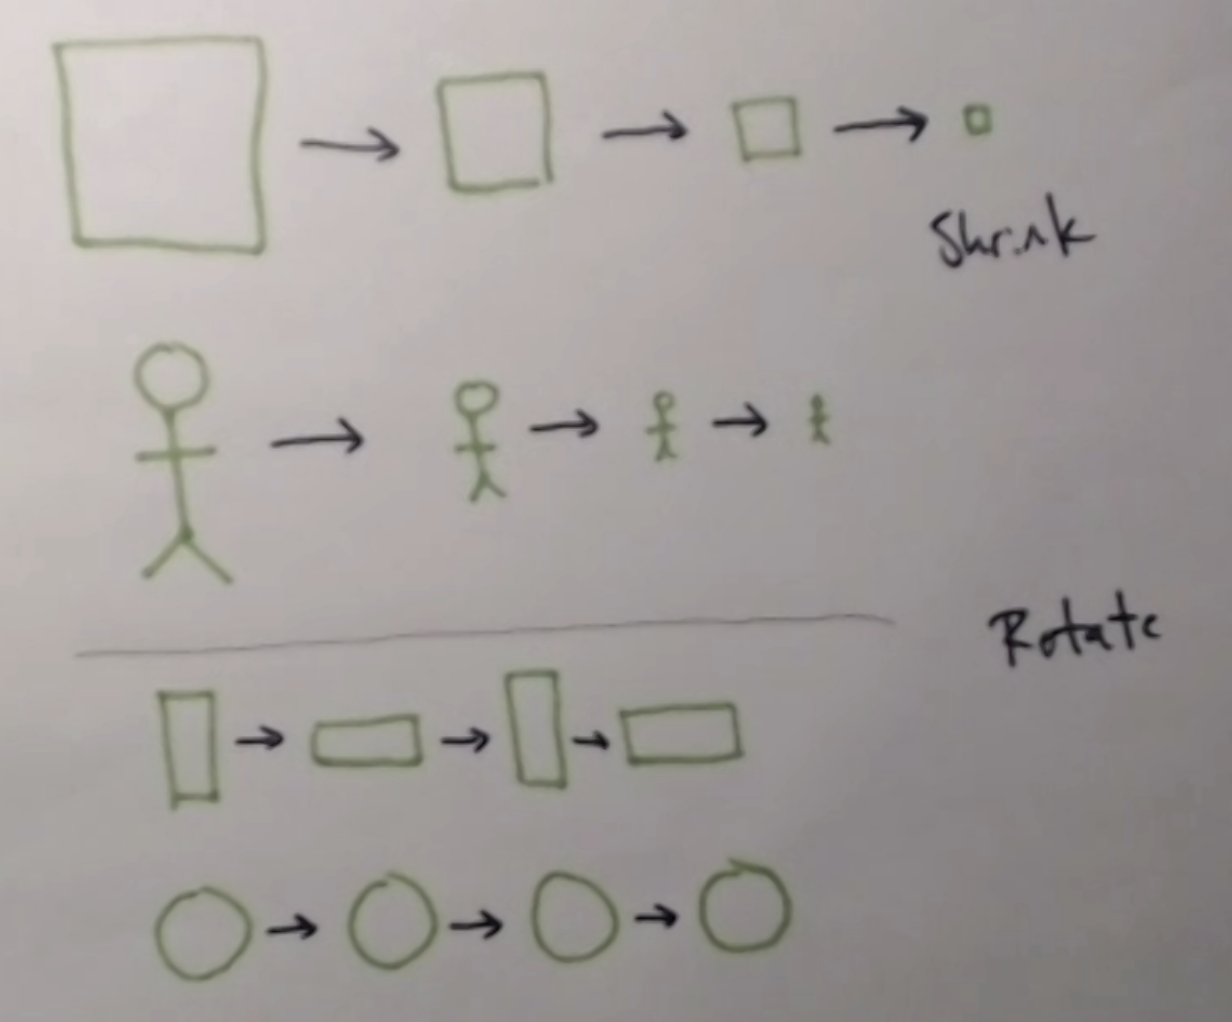 Shrink
Rotate